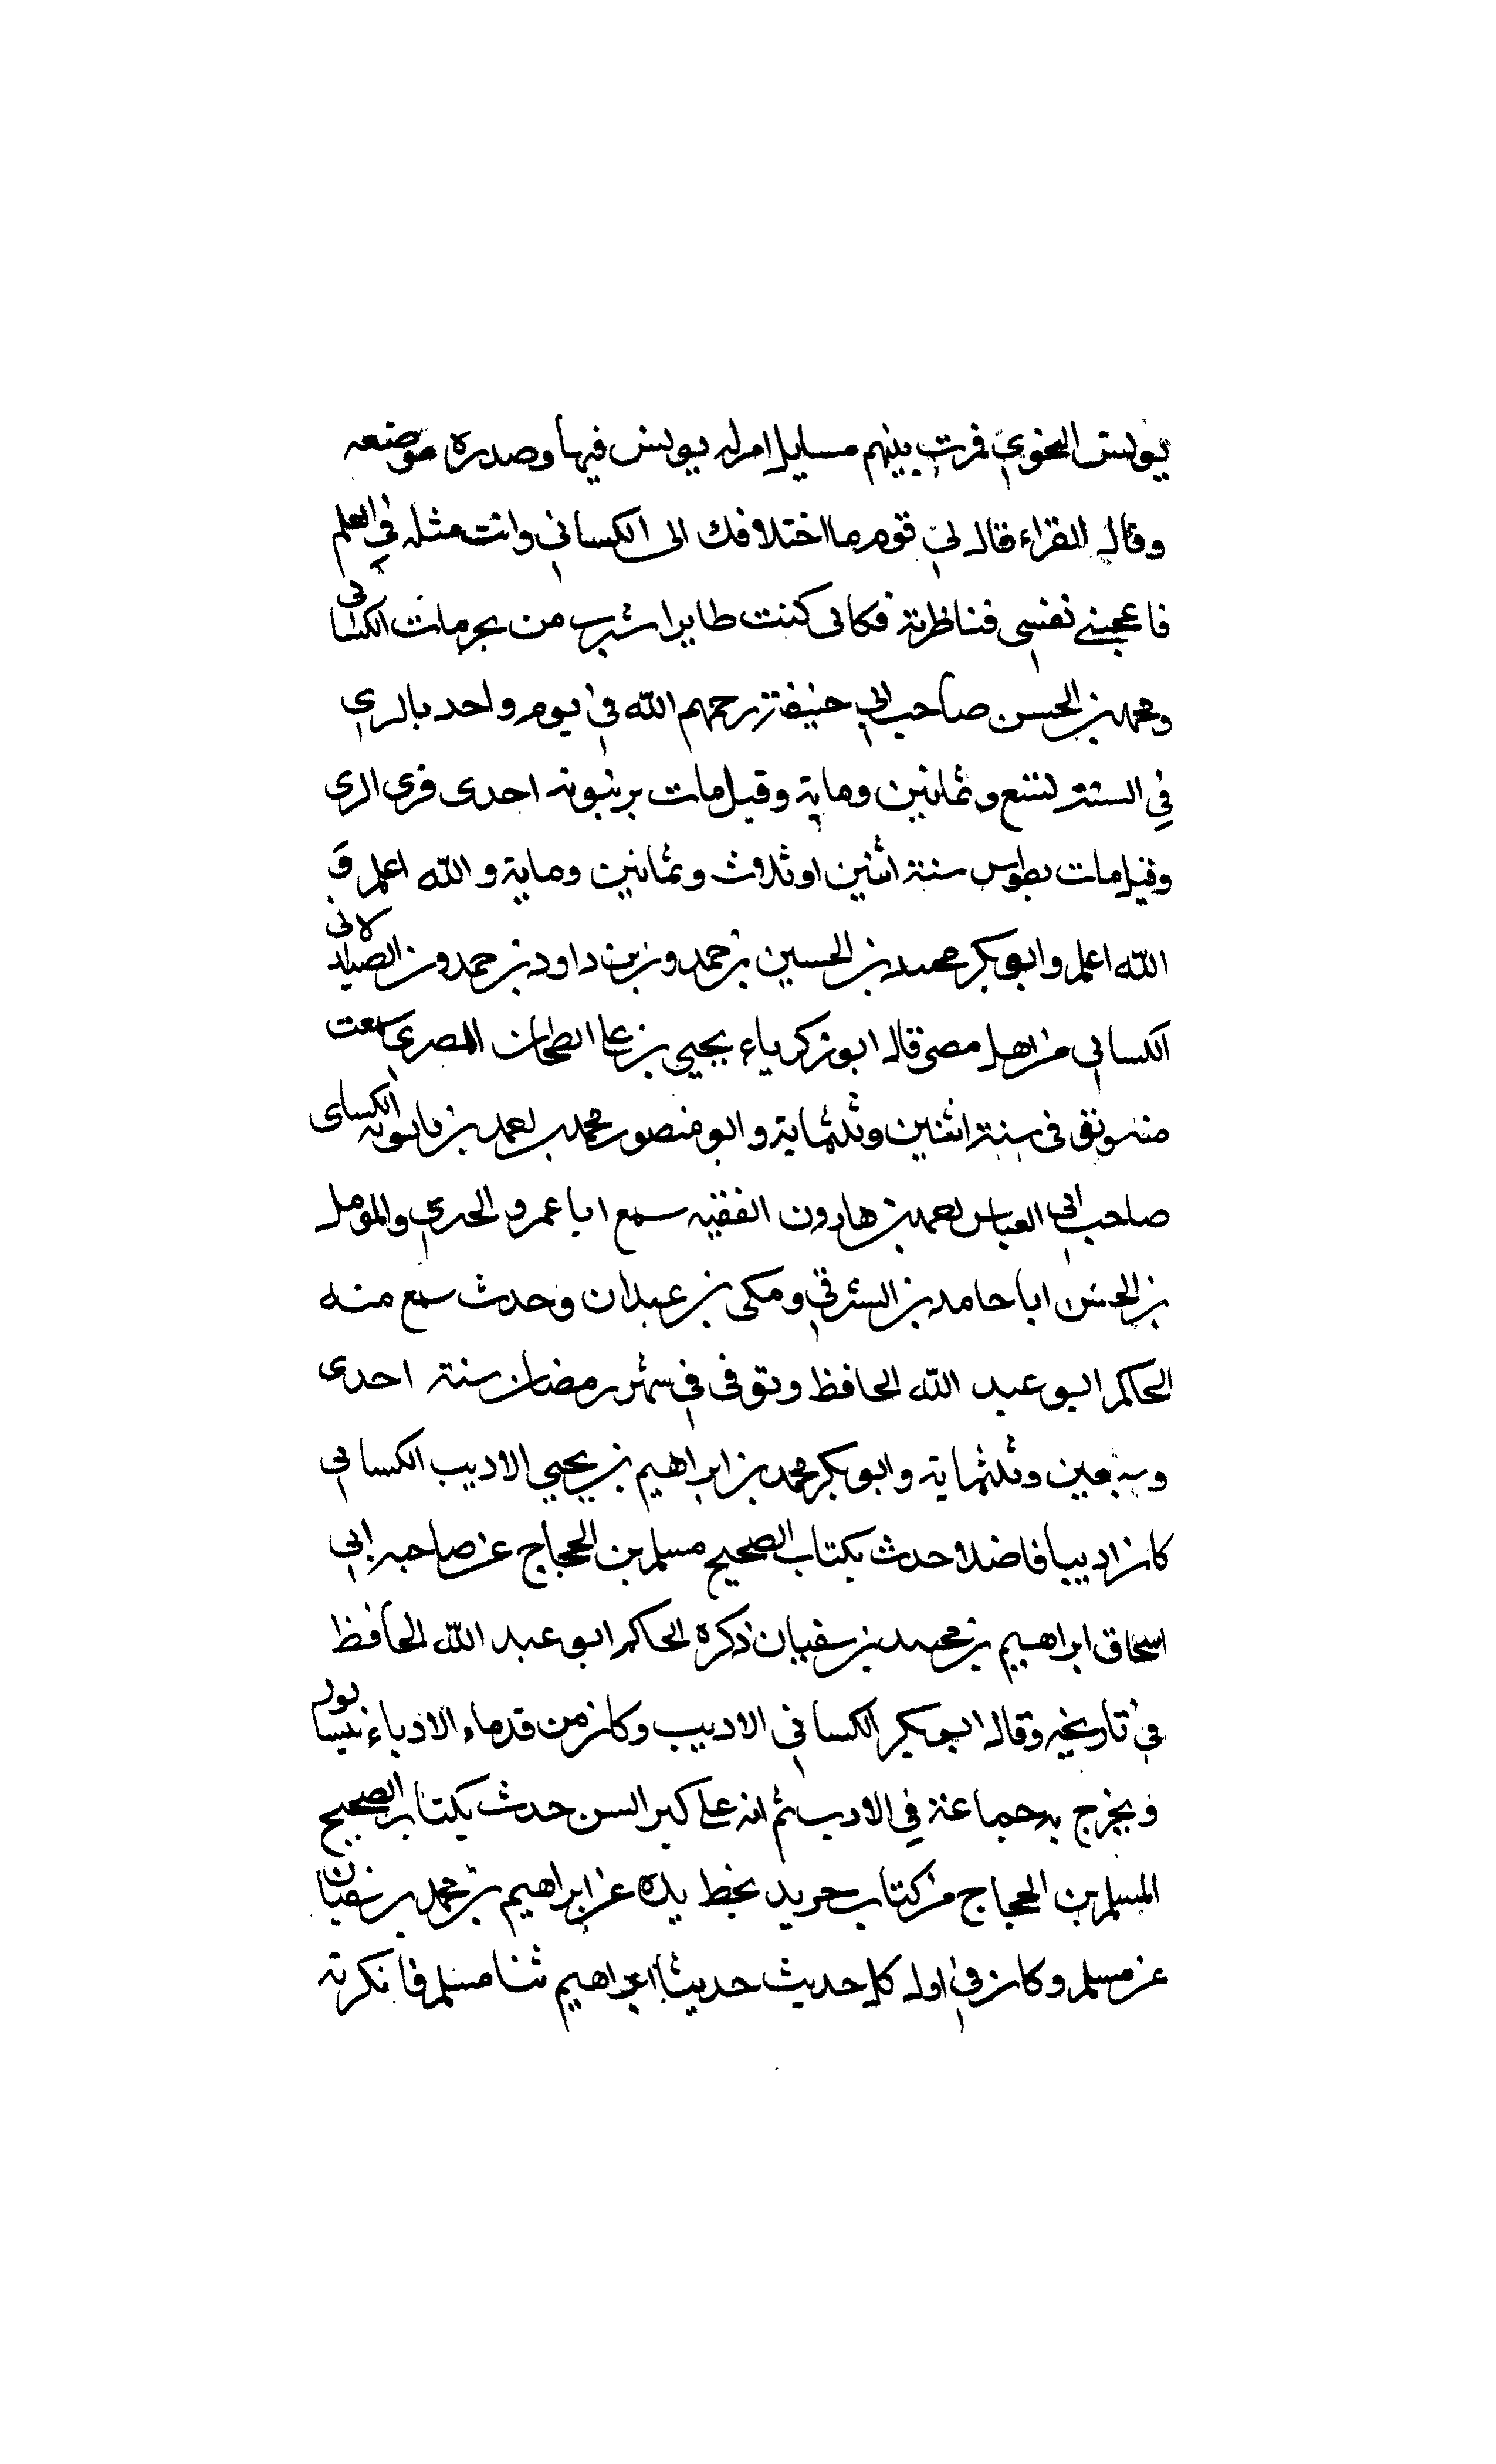 يونس النحوي فمرت بينهم مسايل امر له يونس فيها وصدره موضعه
وقال الفراء قال لي قوم ما اختلافك الى الكسائي وانت مثله في العلم
فاعجبني نفسي فناظرته فكاني كنت طايرا شرب من بحر مات الكسائى
ومحمد بن الحسن صاحب ابي حنيفة رحمهم الله في يوم واحد بالري
في السنة لتسع وثمانين وماية وقيل مات برنبويه احدى قرى الرى
وقيل مات بطوس سنة اثنين او ثلاث وثمانين وماية والله اعلم و
الله اعلم وابو بكر محمد بن الحسين بن حمدون بن داود بن حمدون الصيدلانى
الكسائي من اهل مصر قال ابو زكرياء يحيي بن علي الطحان المصري سمعت
منه وتوفى في سنة اثنين وثلثماية وابو منصور محمد بن احمد بن بابويه الكساى
صاحب ابي العباس احمد بن هارون الفقيه سمع ابا عمرو الحيري والمومل
بن الحسن ابا حامد بن الشرقي ومكى بن عبدان وحدث سمع منه
الحاكم ابو عبد الله الحافظ وتوفى في شهر رمضان سنة احدى
وسبعين وثلثماية وابو بكر محمد بن ابراهيم بن يحيي الاديب الكسائي
كان اديبا فاضلا حدث بكتاب الصحيح مسلم بن الحجاج عن صاحبه ابي
اسحاق ابراهيم بن محمد بن سفيان ذكره الحاكم ابو عبد الله الحافظ
في تاريخه وقال ابو بكر الكسائي الاديب وكان من قدماء الادباء نيسابور
وتخرج به جماعة في الادب ثم انه على كبر السن حدث بكتاب الصحيح
المسلم بن الحجاج من كتاب جديد بخط يده عن ابراهيم بن محمد بن سفيان
عن مسلم وكان في اول كل حديث حديثا ابراهيم ثنا مسلم فانكرته